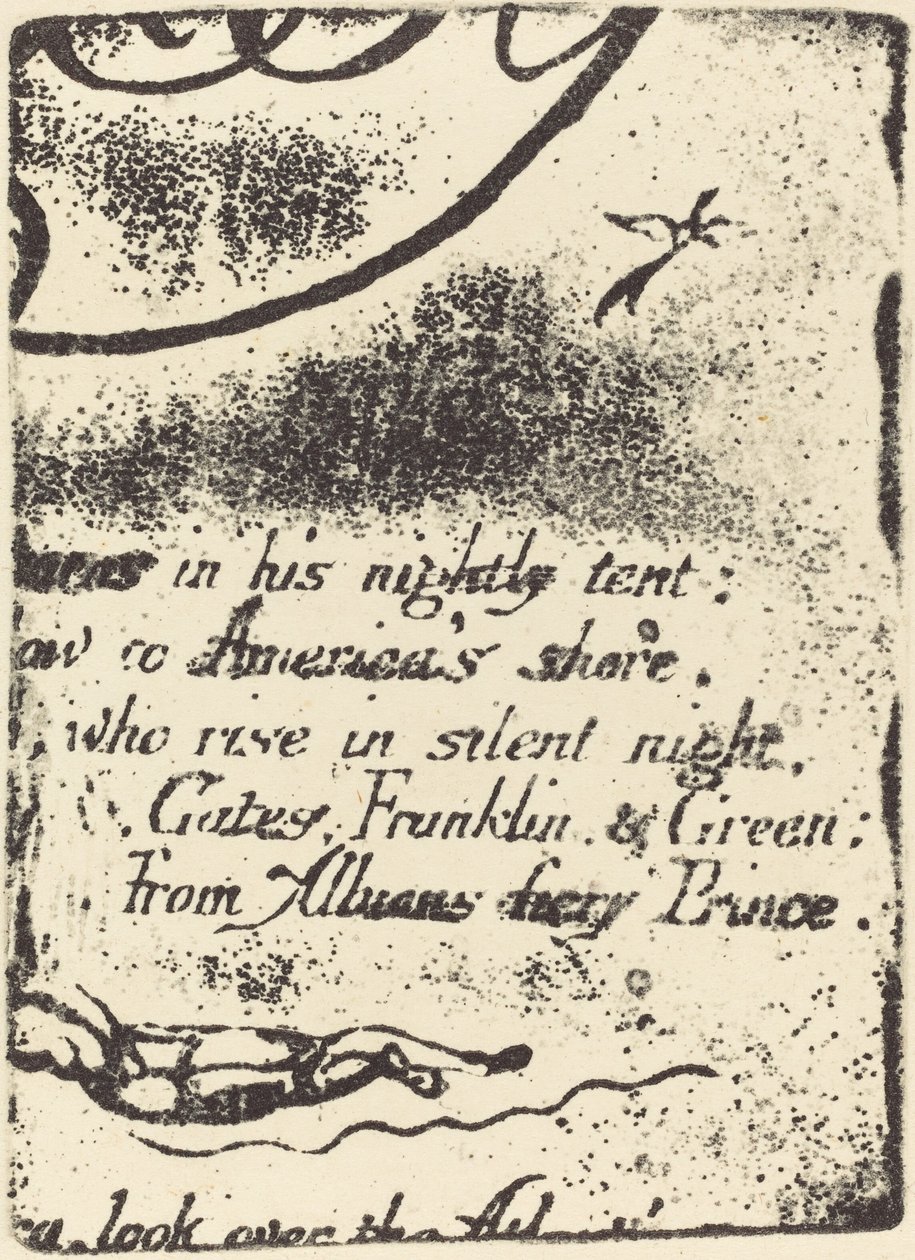 burns in his nightly tent:
ow to America's shore.
, who rise in silent night,
Gates, Franklin & Green;
From Albions fiery Prince.
ca, look over the